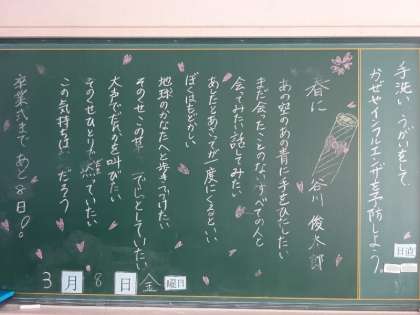 手洗い うがいをして
かぜやインフルエンザを予防しよう。
日直
春に
谷川 俊太郎
あの空のあの青に手をひたしたい
まだ会ったことのないすべての人と
会ってみたい話してみたい
あしたとあさってが一度にくるといい
ぼくはもどかしい
地球のかなたへと歩きつづけたい
そのくせこの草 でじっとしていたい
大声でだれかを叫びたい
そのくせひとりで黙っていたい
この気持ちは だろう
卒業式まで あと8日!
3月8日(金)曜日